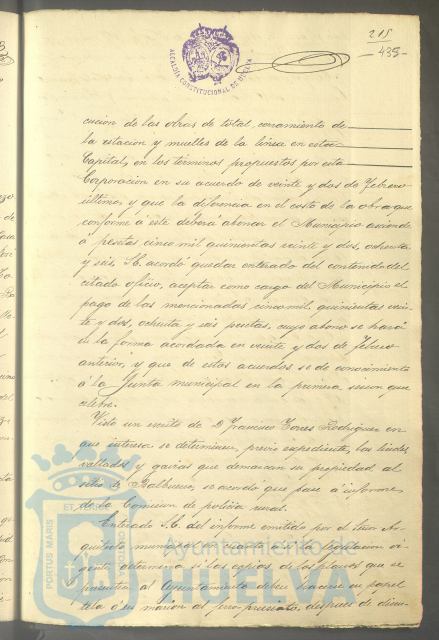 215
-439-
ALCALDÍA CONSTITUCIONAL DE HUELVA
cucion de las obras de total cerramiento de
la estación y muelles de la linea en esta
Capital, en los términos propuestos por esta
Corporacion en su acuerdo de veinte y dos de Febrero
último y que la diferencia en el costo de la obra que
conforme á este deberá abonar el Municipio asciende
á pesetas cinco mil quinientas veinte y dos, ochenta
y seis, S.C. acordó quedar enterado del contenido del
citado oficio, aceptar como cargo del Municipio el
pago de las mencionadas cinco mil quinientas vein-
te y dos, ochenta y seis pesetas, cuyo abono se hará
en la forma acordada en veinte y dos de Febrero
anterior, y que de estos acuerdos se de conocimiento
á la Junta municipal en la primera sesion que
celebre.
Visto un escrito de D. Francisco Torres Rodriguez en
que interesa se determinen, previo expediente, las lindes
vallados y gavias que demarcan su propiedad al
sitio de Balbueno, se acordó que pase á informe
de la Comision de policia rural.
Enterado S.C. del informe emitido por el Señor Ar-
quitecto municipal a la legislacion vi-
gente determina si las copias de los planos que se
presentan al Ayuntamiento deben hacerse en papel
tela ó sus marion al ferro prusiato, despues de discu-
PORTUS MARIS ET
Ayuntamiento de
HUELVA